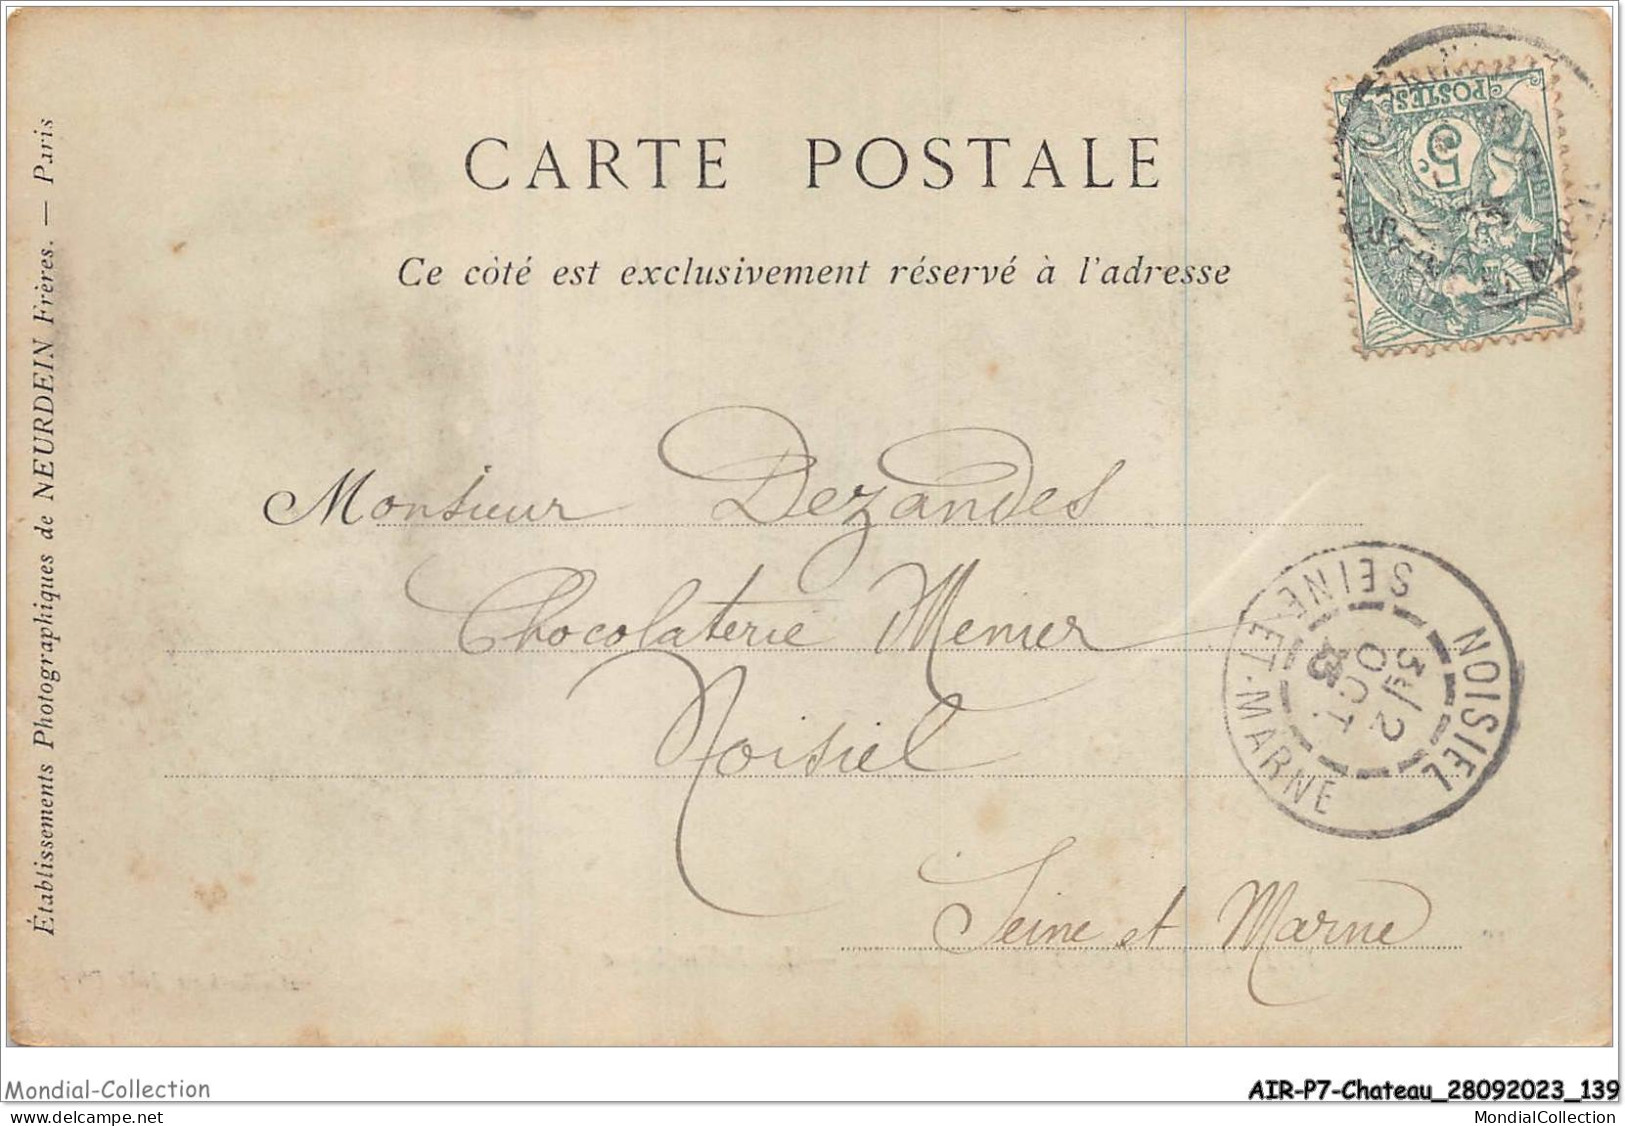 CARTE POSTALE
Ce côté est exclusivement réservé à l'adresse
POSTES
5c
Monsieur Dezandes
Chocolaterie Menier
Noisiel
Seine et Marne
NOISIEL
SEINE-ET-MARNE
3E/2
OCT.
Établissements Photographiques de NEURDEIN Frères. — Paris
Mondial-Collection
AIR-P7-Chateau_28092023_139
www.delcampe.net
MondialCollection